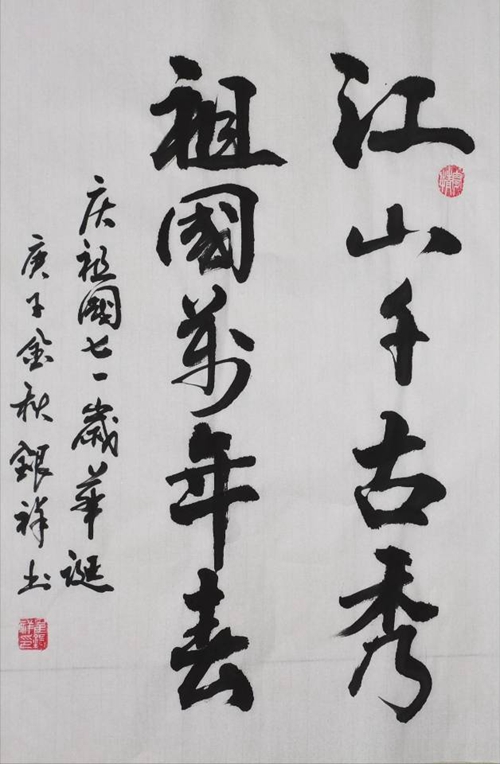 江山千古秀
祖國萬年春
庆祖國七一歲華誕
庚子金秋銀祥书